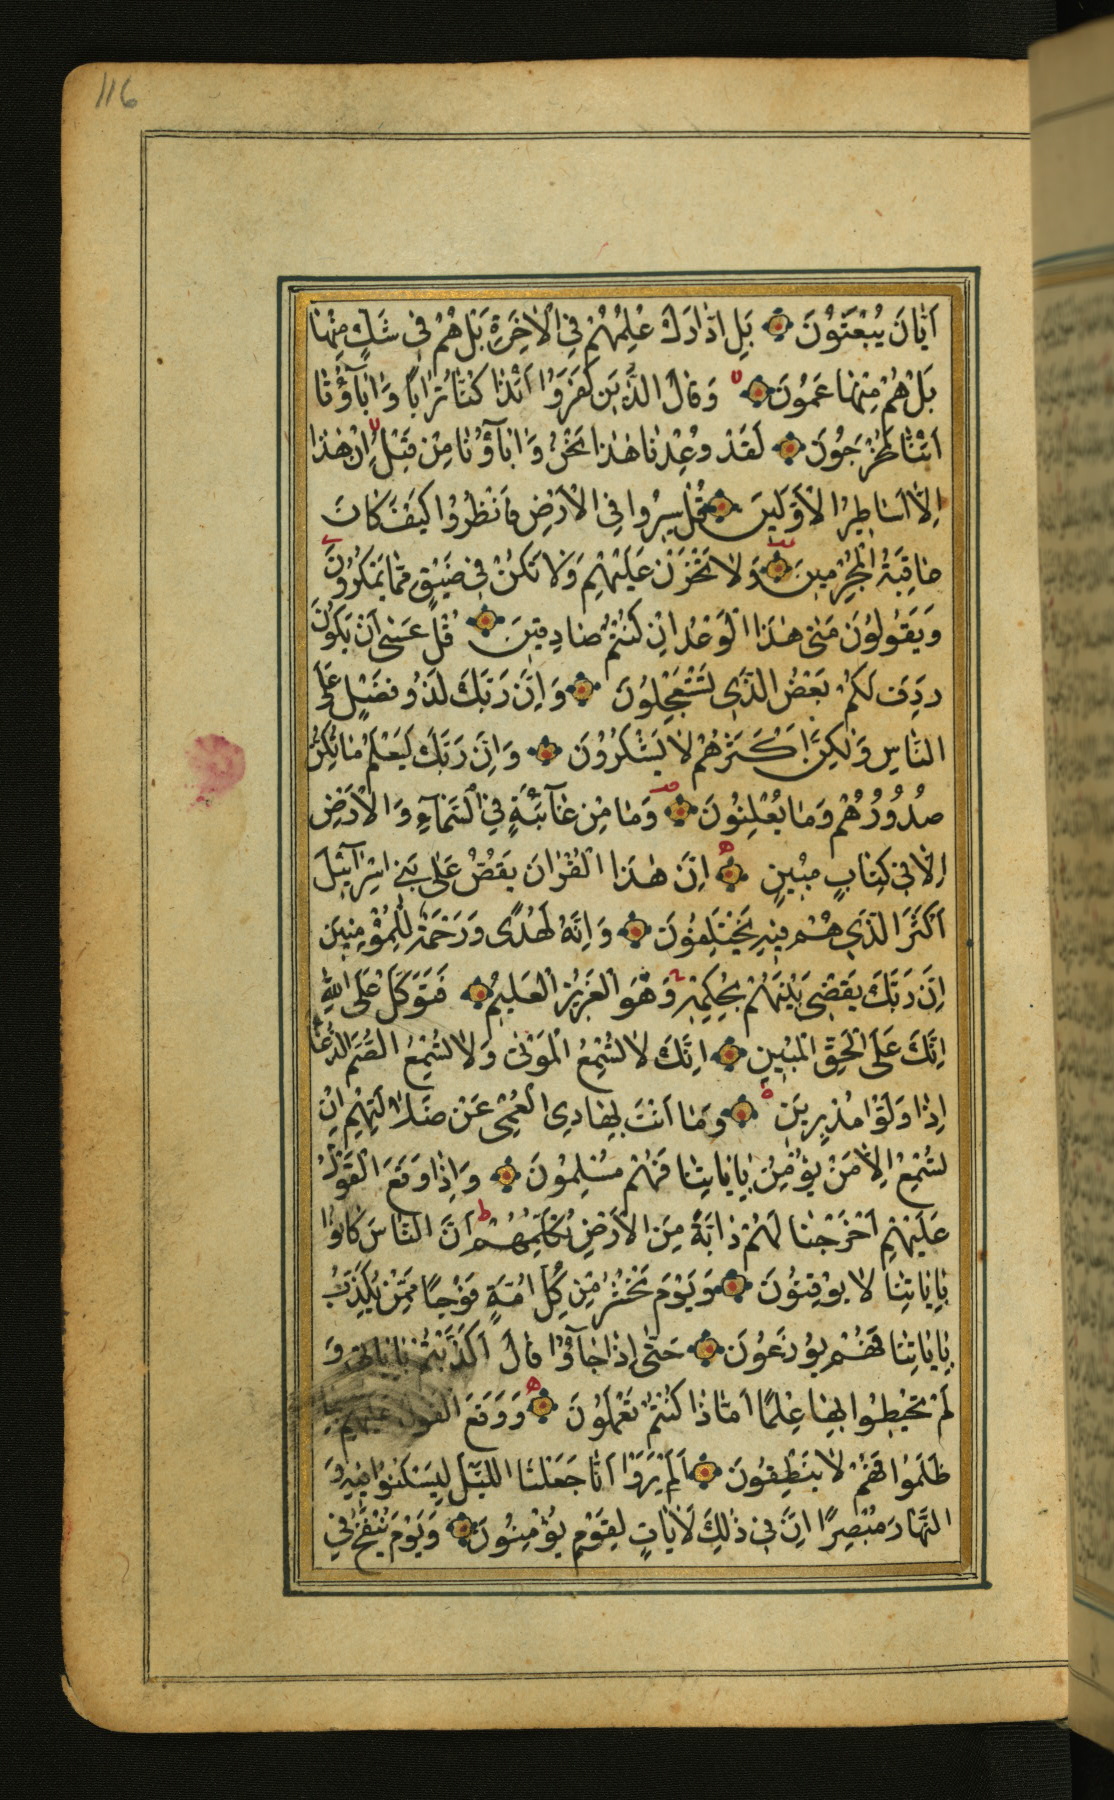 116
اَيَّانَ يُبْعَثُونَ بَلِ ادَّارَكَ عِلْمُهُمْ فِي الْاٰخِرَةِ بَلْ هُمْ فِي شَكٍّ مِنْهَا
بَلْ هُمْ مِنْهَا عَمُونَ وَقَالَ الَّذِينَ كَفَرُوا اَئِذَا كُنَّا تُرَابًا وَاٰبَآؤُنَا
اَئِنَّا لَمُخْرَجُونَ لَقَدْ وُعِدْنَا هٰذَا نَحْنُ وَاٰبَآؤُنَا مِنْ قَبْلُ اِنْ هٰذَا
اِلَّا اَسَاطِيرُ الْاَوَّلِينَ قُلْ سِيرُوا فِي الْاَرْضِ فَانْظُرُوا كَيْفَ كَانَ
عَاقِبَةُ الْمُجْرِمِينَ وَلَا تَحْزَنْ عَلَيْهِمْ وَلَا تَكُنْ فِي ضَيْقٍ مِمَّا يَمْكُرُونَ
وَيَقُولُونَ مَتٰى هٰذَا الْوَعْدُ اِنْ كُنْتُمْ صَادِقِينَ قُلْ عَسٰى اَنْ يَكُونَ
رَدِفَ لَكُمْ بَعْضُ الَّذِي تَسْتَعْجِلُونَ وَاِنَّ رَبَّكَ لَذُو فَضْلٍ عَلَى
النَّاسِ وَلٰكِنَّ اَكْثَرَهُمْ لَا يَشْكُرُونَ وَاِنَّ رَبَّكَ لَيَعْلَمُ مَا تُكِنُّ
صُدُورُهُمْ وَمَا يُعْلِنُونَ وَمَا مِنْ غَآئِبَةٍ فِي السَّمَآءِ وَالْاَرْضِ
اِلَّا فِي كِتَابٍ مُبِينٍ اِنَّ هٰذَا الْقُرْاٰنَ يَقُصُّ عَلٰى بَنِي اِسْرَآئِيلَ
اَكْثَرَ الَّذِي هُمْ فِيهِ يَخْتَلِفُونَ وَاِنَّهُ لَهُدًى وَرَحْمَةٌ لِلْمُؤْمِنِينَ
اِنَّ رَبَّكَ يَقْضِي بَيْنَهُمْ بِحُكْمِهِ وَهُوَ الْعَزِيزُ الْعَلِيمُ فَتَوَكَّلْ عَلَى اللّٰهِ
اِنَّكَ عَلَى الْحَقِّ الْمُبِينِ اِنَّكَ لَا تُسْمِعُ الْمَوْتٰى وَلَا تُسْمِعُ الصُّمَّ الدُّعَآءَ
اِذَا وَلَّوْا مُدْبِرِينَ وَمَا اَنْتَ بِهَادِي الْعُمْيِ عَنْ ضَلَالَتِهِمْ اِنْ
تُسْمِعُ اِلَّا مَنْ يُؤْمِنُ بِاٰيَاتِنَا فَهُمْ مُسْلِمُونَ وَاِذَا وَقَعَ الْقَوْلُ
عَلَيْهِمْ اَخْرَجْنَا لَهُمْ دَابَّةً مِنَ الْاَرْضِ تُكَلِّمُهُمْ اَنَّ النَّاسَ كَانُوا
بِاٰيَاتِنَا لَا يُوقِنُونَ وَيَوْمَ نَحْشُرُ مِنْ كُلِّ اُمَّةٍ فَوْجًا مِمَّنْ يُكَذِّبُ
بِاٰيَاتِنَا فَهُمْ يُوزَعُونَ حَتّٰى اِذَا جَآؤُا قَالَ اَكَذَّبْتُمْ بِاٰيَاتِي وَ
لَمْ تُحِيطُوا بِهَا عِلْمًا اَمَّاذَا كُنْتُمْ تَعْمَلُونَ وَوَقَعَ الْقَوْلُ عَلَيْهِمْ بِمَا
ظَلَمُوا فَهُمْ لَا يَنْطِقُونَ اَلَمْ يَرَوْا اَنَّا جَعَلْنَا اللَّيْلَ لِيَسْكُنُوا فِيهِ وَ
النَّهَارَ مُبْصِرًا اِنَّ فِي ذٰلِكَ لَاٰيَاتٍ لِقَوْمٍ يُؤْمِنُونَ وَيَوْمَ يُنْفَخُ فِي